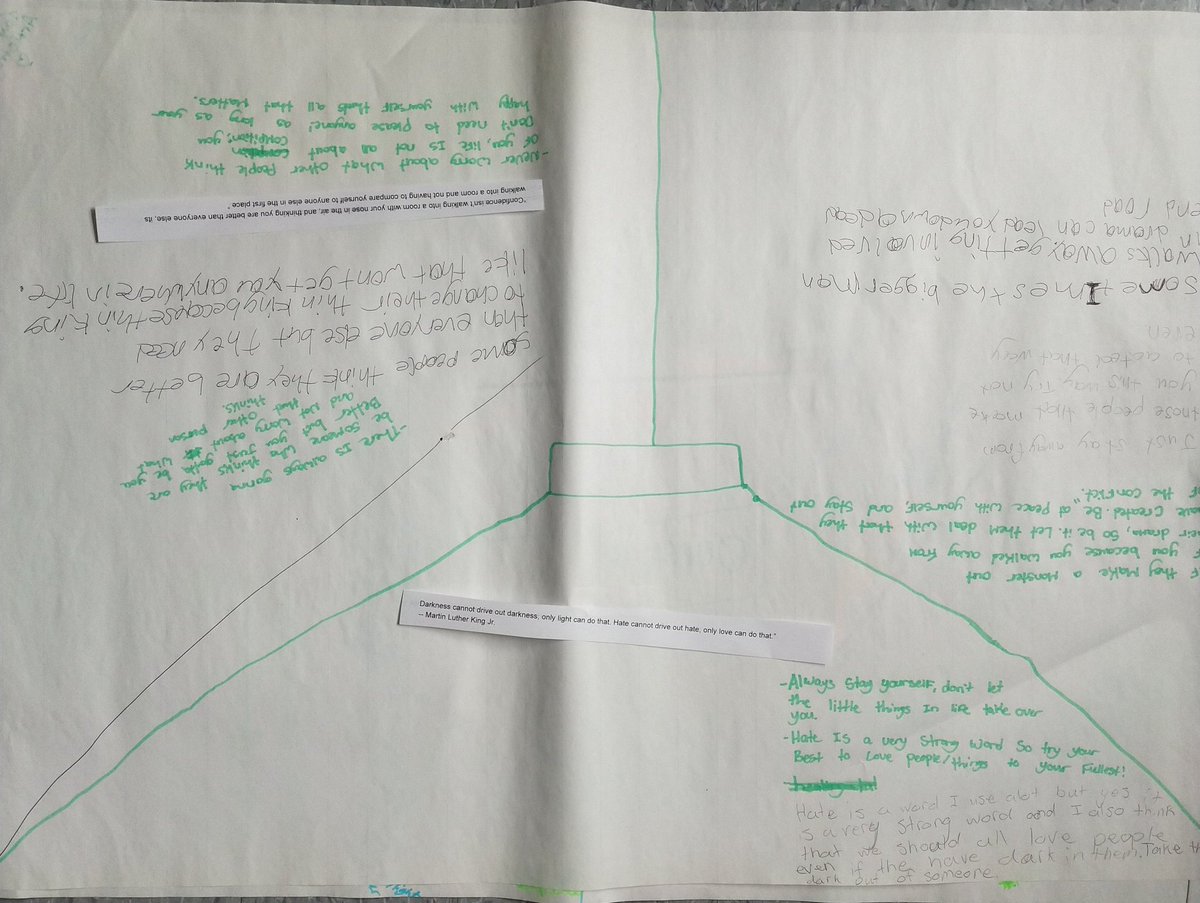 -Never worry about what other people think
of you, life is not all about compition; you
Don't need to please anyone! as long as your
happy with yourself thats all that Matters.
"Confidence isn't walking into a room with your nose in the air, and thinking you are better than everyone else, its
walking into a room and not having to compare yourself to anyone else in the first place."
some people think they are better
then everyone else but they need
to change their thinking because thinking
like that wont get you anywhere in life.
-There is always gonna
be someone who thinks they are
Better but you just gotta be you
and not worry about what
that other person thinks.
Sometimes the bigger man
walks away, getting involved
in drama can lead you down a dead
end road
Just stay away from
those people that make
you this way try not
to act that way
even
If they Make a Monster out
of you because you walked away from
their drama, So be it. Let them deal with that they
have Created. Be at peace with yourself, and stay out
of the conflict."
Darkness cannot drive out darkness; only light can do that. Hate cannot drive out hate; only love can do that."
-- Martin Luther King Jr.
-Always stay yourself, don't let
the little things in life take over
you.
-Hate Is a very strong word so try your
Best to Love people/things to your Fullest!
Hate is a word I use alot but yes it
is a very strong word and I also think
that we should all love people
even if the have dark in them. Take th
dark out of someone.